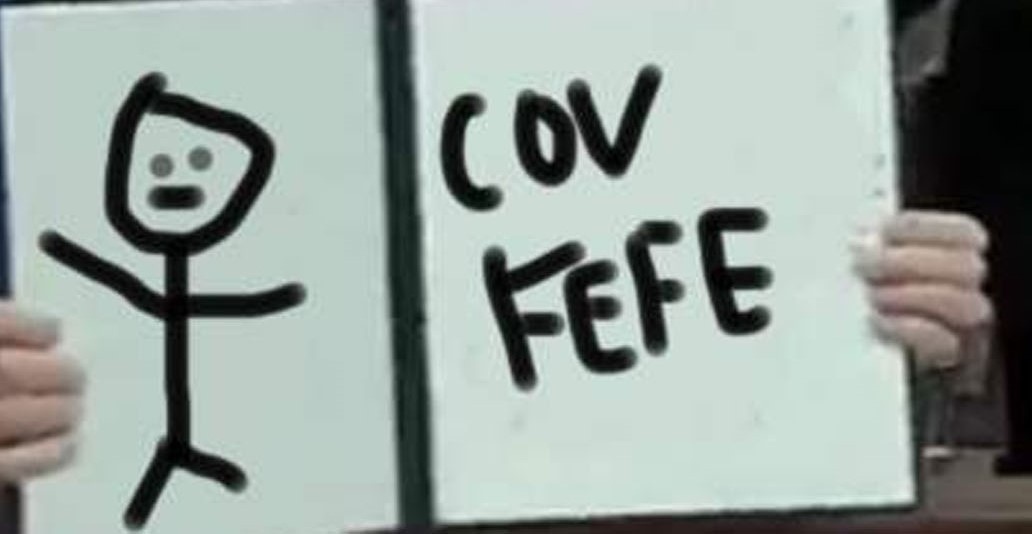 COV
FEFE